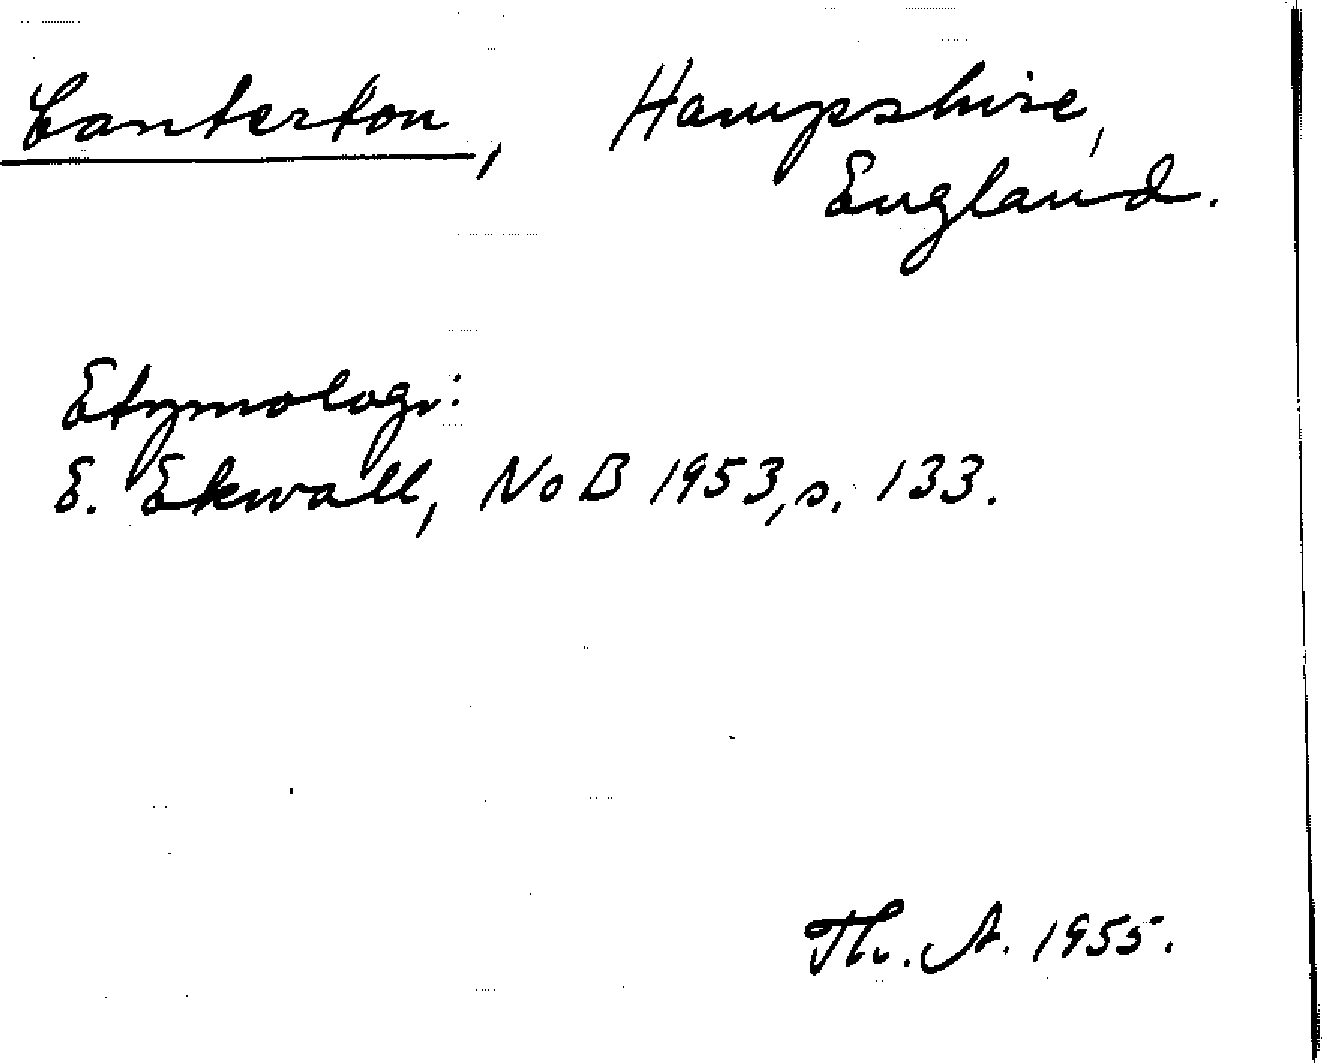 Canterton, Hampshire,
England.
Etymologi:
E. Ekwall, NoB 1953, s. 133.
Th. A. 1955.